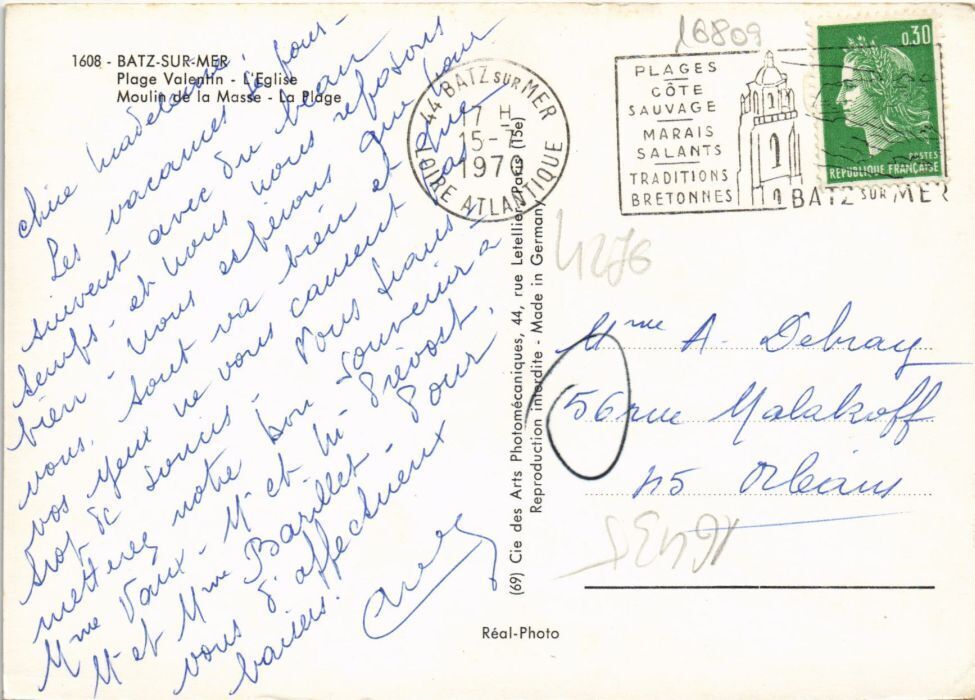 1608 - BATZ-SUR-MER
Plage Valentin - L'Eglise
Moulin de la Masse - La Plage
chère Madeleine,
Les vacances se pour-
suivent avec du beau
temps - et nous nous reposons
bien - nous espérons que pour
vous, tout va bien et que
vos yeux ne vous causent pas
trop de soucis - Vous trans-
mettrez notre bon souvenir à
Mme Vaux - M et M Prévost,
M et Mme Barillet - Pour
vous d'affectueux
baisers.
44 BATZ SUR MER
17 H
15-7
1970
LOIRE ATLANTIQUE
16809
PLAGES
CÔTE
SAUVAGE
MARAIS
SALANTS
TRADITIONS
BRETONNES
BATZ SUR MER
0.30
POSTES
REPUBLIQUE FRANÇAISE
4276
Mme A. Debray
56 rue Malakoff
45 Orléans
(69) Cie des Arts Photomécaniques, 44, rue Letellier, Paris (15e)
Reproduction interdite - Made in Germany
Réal-Photo